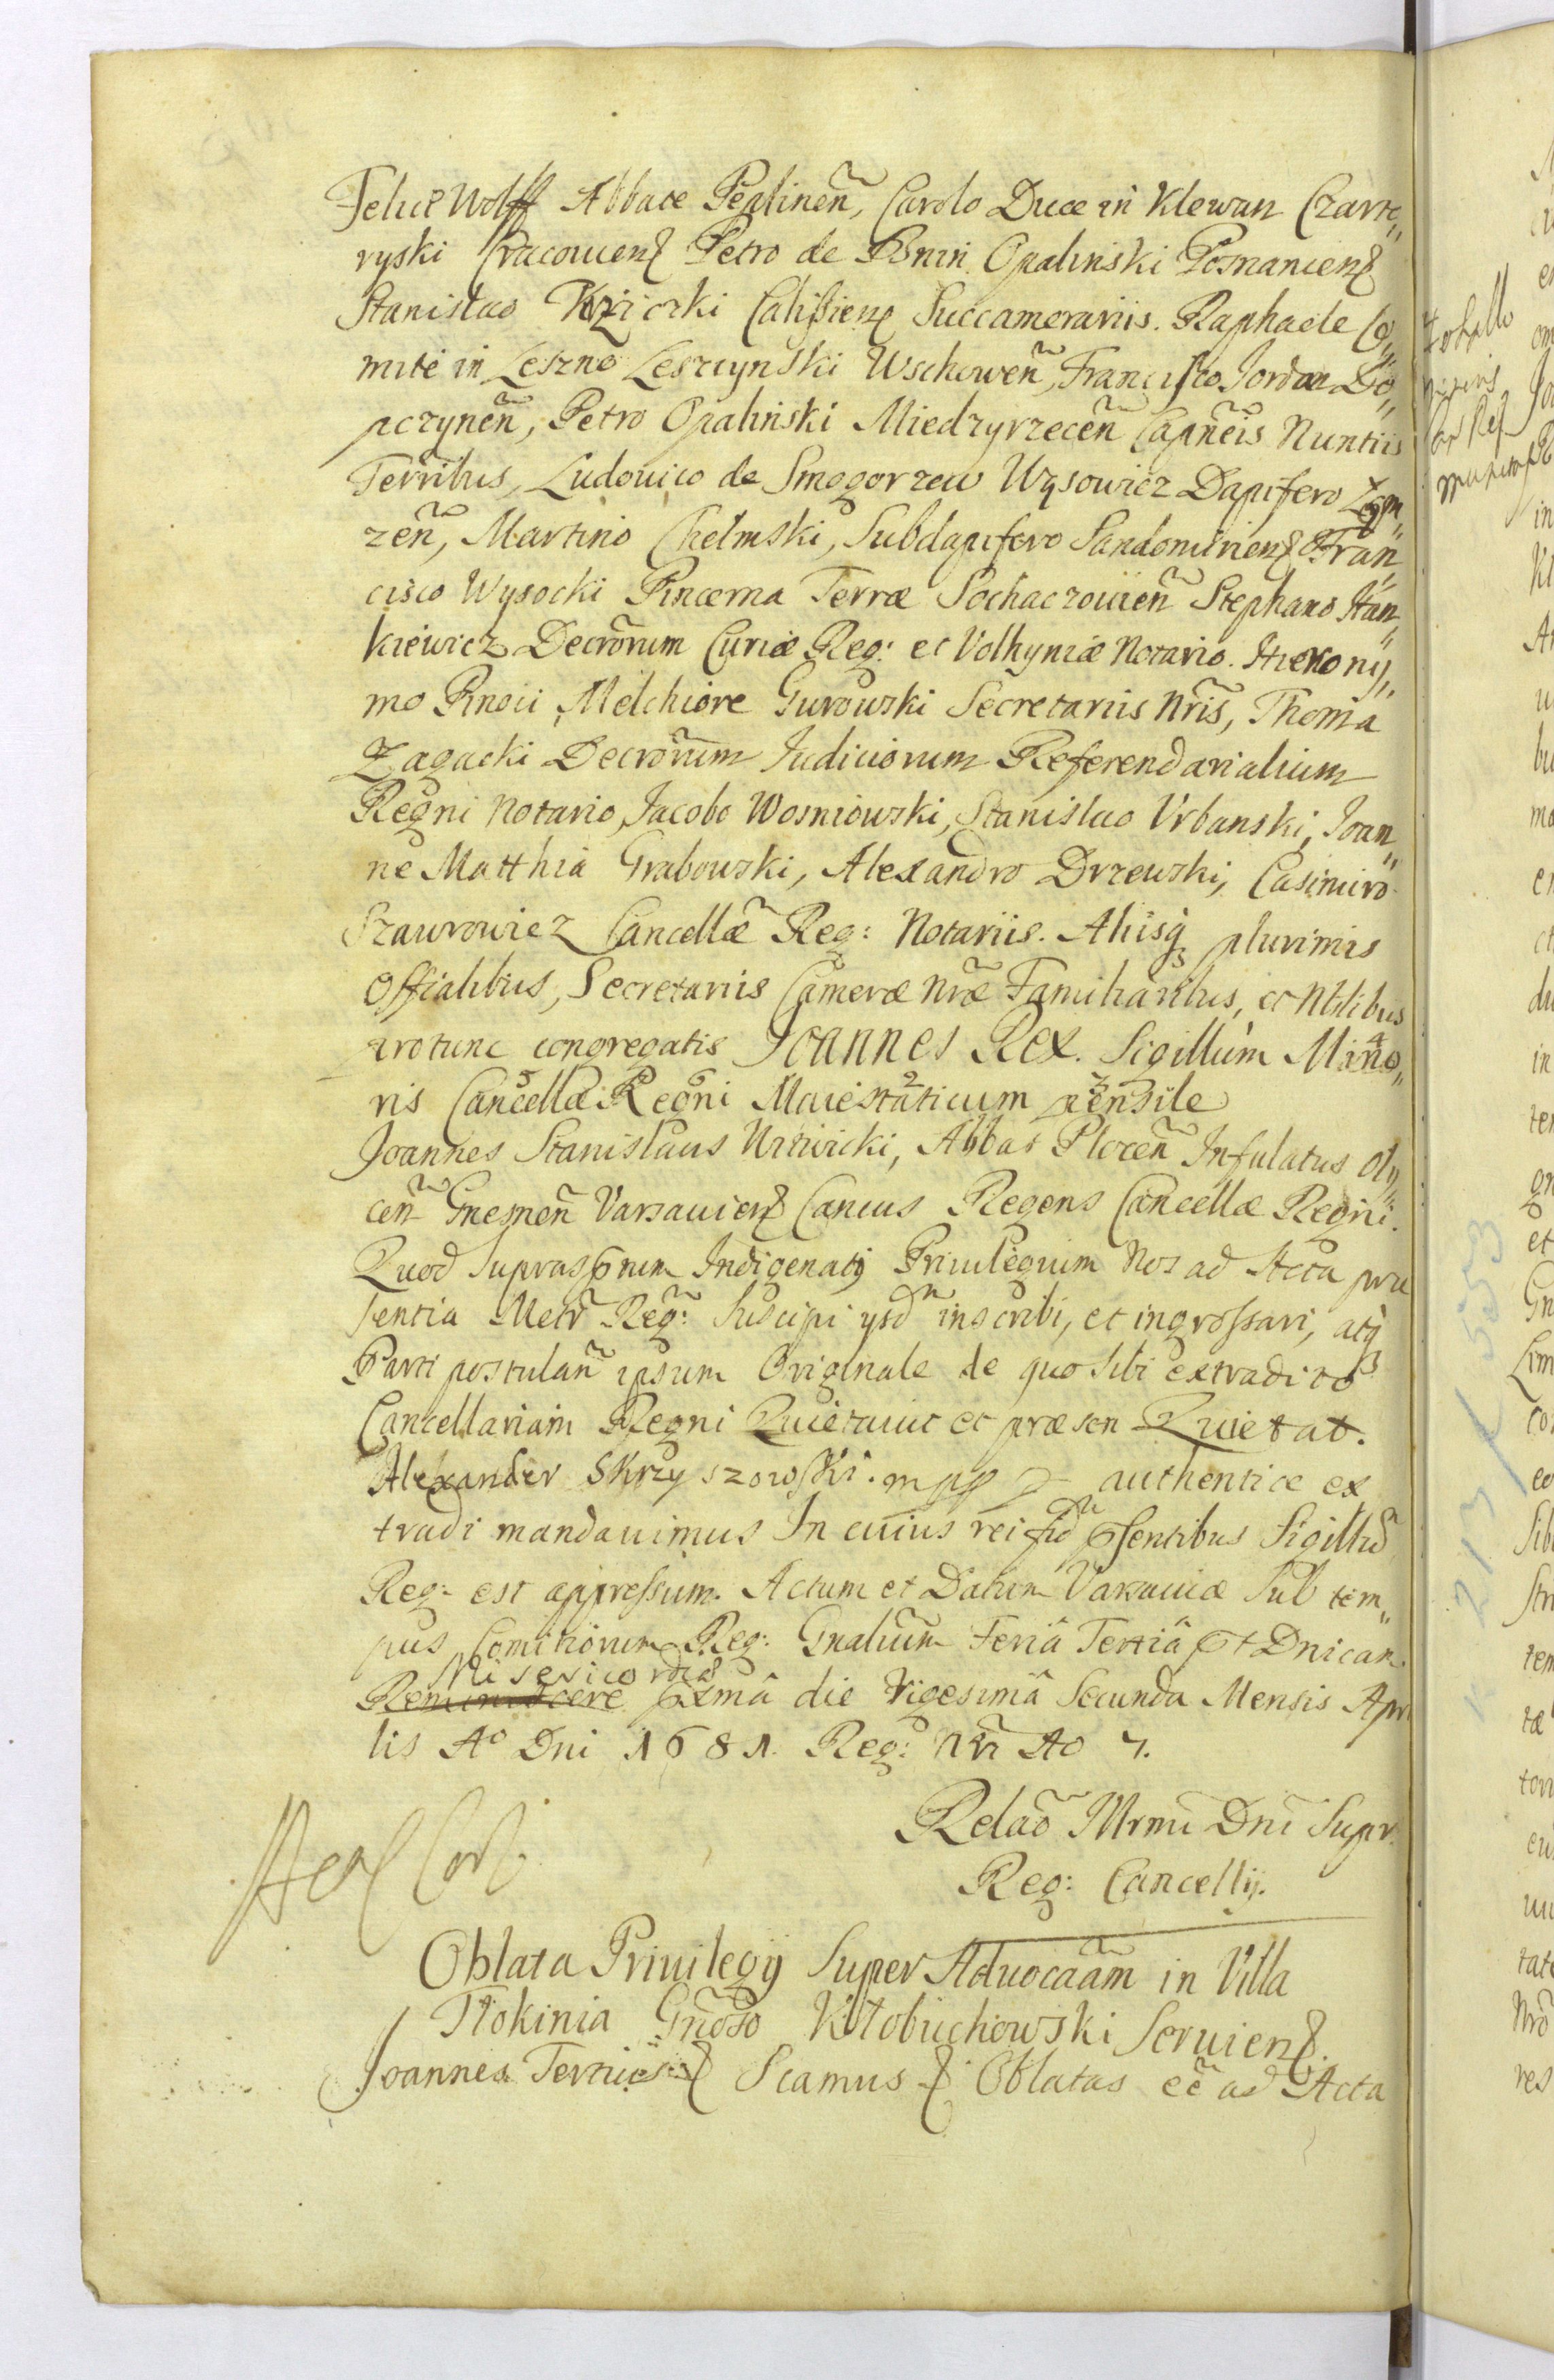 Felice Wolff Abbate Peplinen̄, Carolo Duce in Klewan Czarto„
ryski Cracouien Petro de Bnin Opalinski Posnanien
Stanislao Krzicki Calissien Succamerariis. Raphaele Co„
mite in Leszno Leszczynski Wschowen̄, Francisco Jordan Do„
pczynen̄, Petro Opalinski Miedzyrzecen̄ Capn̄eis Nuntiis
Terrībus, Ludouico de Smogorzew Wąsowicz Dapifero Łom„
zen̄, Martino Chełmski, Subdapifero Sandomirien Fran„
cisco Wysocki Pincerna Terræ Sochaczouien̄ Stephano Han„
kiewicz Decrōrum Curiæ Reg: et Volhyniæ Notario. Hierony„
mo Pinoci, Melchiore Gurowski Secretariis Nr̄is, Thoma
Zagacki Decrōrum Iudiciorum Referendarialium
Regni Notario, Jacobo Wosniowski, Stanislao Vrbanski, Joan„
ne Matthia Grabowski, Alexandro Drzewski, Casimiro
Szawrowicz Cancellæ Reg: Notariis. Aliisq̨ plurimis
Offialibus, Secretariis Cameræ Nr̄æ Familiaribus, et Nbilibus
protunc congregatis Joannes Rex. Sigillum Mino„
ris Cancellæ Regni Maiestaticum pensile
Joannes Stanislaus Witwicki, Abbas Plocen̄ Infulatus Oly„
cen̄ Gnesnen̄ Varsauien Cancus Regens Cancellæ Regni.
Quod suprasptum Indigenatq Priuilegium Nos ad Acta præ
sentia Metr̄ Reg: Suscipi ysd̄ inscribi, et ingrossari, atq̨
Parti postulan̄ ipsum Originale de quo sibi extradito
Cancellariam Regni Quietauit et præsen Quietat.
Alexander Skrzyszowski. mpp authentice ex
tradi mandauimus In cuius rei fid̄ psentibus Sigillū
Reg: est appressum. Actum et Datum Varsauiæ Sub tem„
pus Comitiorum Reg: Gnalium Feriâ Tertiâ pt Dnicam
Misericordiæ
Reminiscere pxmâ die Vigesimâ Secunda Mensis Apri
lis Ao Dni 1681. Reg: Nr̄i Ao 7.
Relāo Illrmi Dni Supr.
Reg: Cancellÿ.
Oblata Priuilegÿ Super Aduocāam in Villa
Tłokinia Gnōso Kłobuchowski Seruien.
Joannes Tertius Scamus Oblatas eē ad Acta